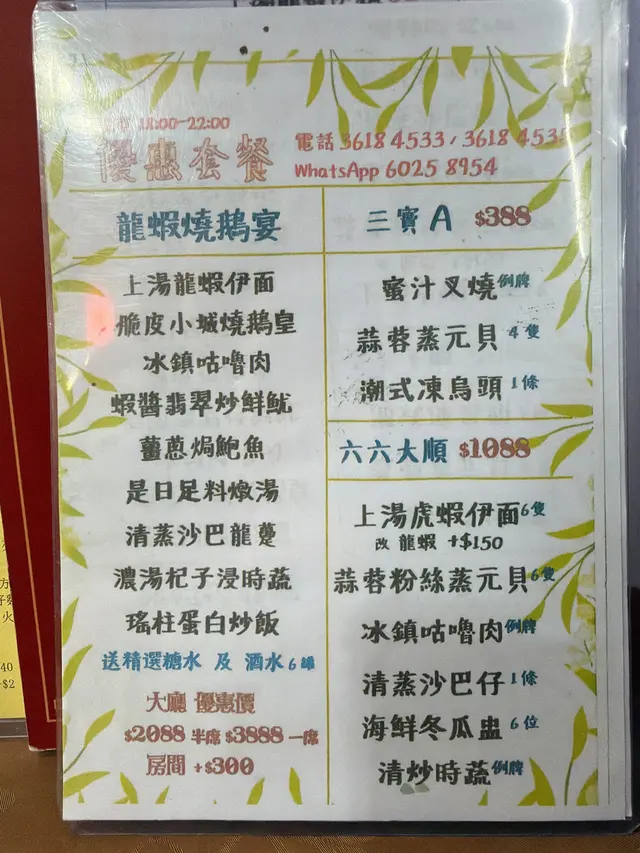 18:00-22:00
優惠套餐
電話 3618 4533 / 3618 4535
WhatsApp 6025 8954
龍蝦燒鵝宴
上湯龍蝦伊面
脆皮小城燒鵝皇
冰鎮咕嚕肉
蝦醬翡翠炒鮮魷
薑蔥焗鮑魚
是日足料燉湯
清蒸沙巴龍躉
濃湯杞子浸時蔬
瑤柱蛋白炒飯
送精選糖水 及 酒水6罐
大廳 優惠價
$2088 半席 $3888 一席
房間 +$300
三寶 A $388
蜜汁叉燒 例牌
蒜蓉蒸元貝 4隻
潮式凍烏頭 1條
六六大順 $1088
上湯虎蝦伊面 6隻
改 龍蝦 +$150
蒜蓉粉絲蒸元貝 6隻
冰鎮咕嚕肉 例牌
清蒸沙巴仔 1條
海鮮冬瓜盅 6位
清炒時蔬 例牌